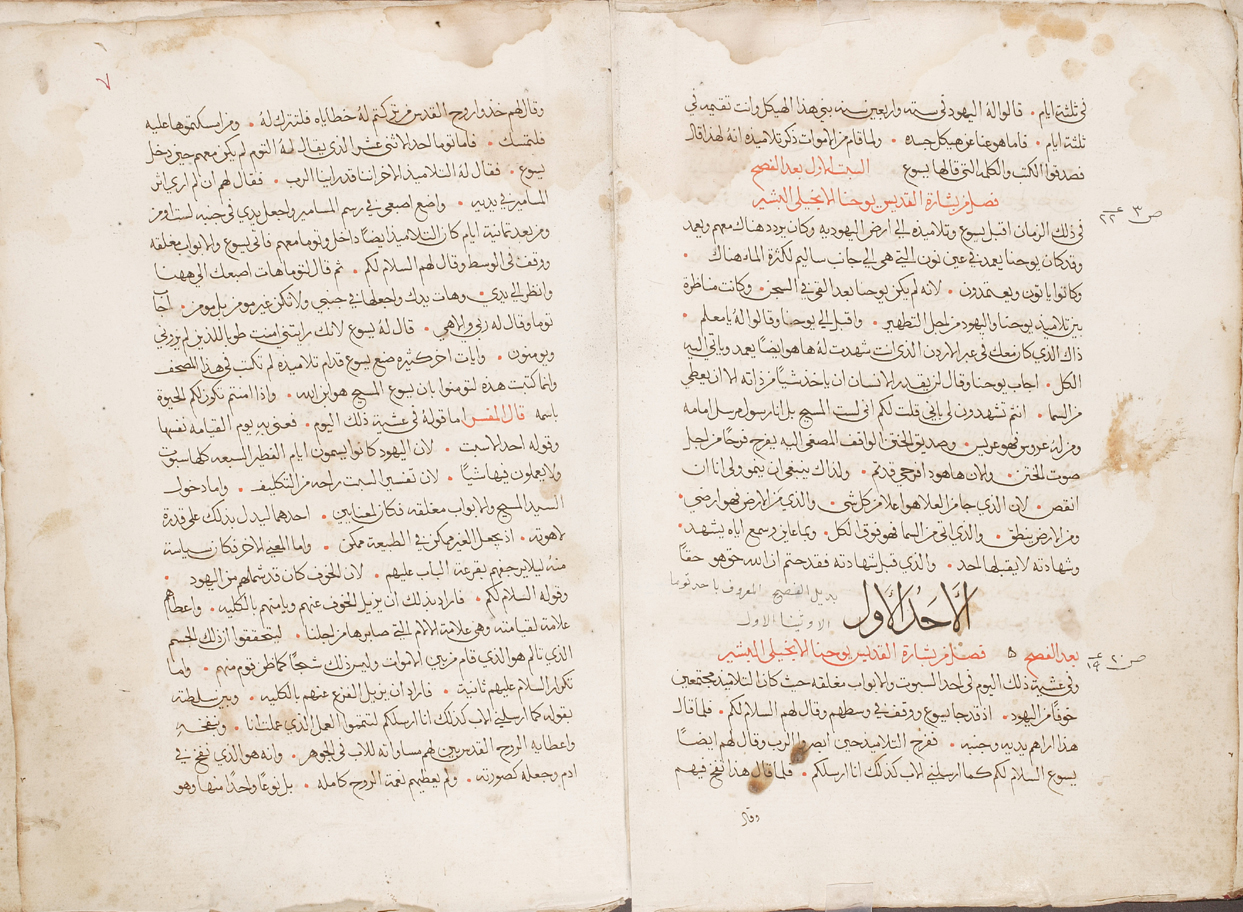 في ثلثة ايام • قالوا له اليهود في سته واربعين سنه بني هذا الهيكل وانت تقيمه في
ثلثة ايام • فاما هو عنا عن هيكل جسده • ولما قام من الاموات ذكر تلاميذه انه لهذا قال
فصدقوا الكتب والكلمه التي قالها يسوع السبت الاول بعد الفصح
فصل من بشارة القديس يوحنا الانجيلي البشير
ص ٣ ع ٢٢
في ذلك الزمان اقبل يسوع وتلاميذه الي ارض اليهوديه وكان يردد هناك معهم ويعمد
وقد كان يوحنا يعمد في عين نون التي هي الي جانب ساليم لكثرة الماء هناك •
وكانوا ياتون ويعتمدون • لانه لم يكن يوحنا بعد القي في السجن • وكانت مناظرة
بين تلاميذ يوحنا واليهود من اجل التطهير • واقبل الي يوحنا وقالوا له يا معلم •
ذاك الذي كان معك في عبر الاردن الذي انت شهدت له ها هو ايضاً يعمد وياتي اليه
الكل • اجاب يوحنا وقال لن يقدر الانسان ان ياخذ شياً من ذاته الا ان يعطي
من السما • انتم تشهدون لي باني قلت لكم اني لست المسيح بل انا رسول مرسل امامه
ومن له عروس فهو عريس • وصديق الختن الواقف المصغي اليه يفرح فرحاً من اجل
صوت الختن • والان ها هوذا فرحي قد تم • ولذاك ينبغي ان ينمو ولي انا ان
انقص • لان الذي جا من العلا هو اعلا من كل شي • والذي من الارض فهو ارضي •
ومن الارض ينطق • والذي اتي من السما فهو فوق الكل • وبما عاين وسمع اياه يشهد •
وشهادته لا يقبلها احد • والذي قبل شهادته فقد ختم ان الله حق هو حقاً
الأحد الأول
بديل الفصح المعروف باحد توما
الاوتينا الاول
بعد الفصح ۵ فصل من بشارة القديس يوحنا الانجيلي البشير
ص ٢٠ ع ١٩
وفي عشية ذلك اليوم في احد السبوت والابواب مغلقه حيث كان التلاميذ مجتمعين
خوفاً من اليهود • اذ قد جا يسوع ووقف في وسطهم وقال لهم السلام لكم • فلما قال
هذا اراهم يديه وجنبه • ففرح التلاميذ حين ابصروا الرب وقال لهم ايضاً
يسوع السلام لكم كما ارسلني الاب كذلك انا ارسلكم • فلما قال هذا نفخ فيهم
وقال
٧
وقال لهم خذوا روح القدس من تركتم له خطاياه فلتترك له • ومن امسكتموها عليه
فلتمسك • فاما توما احد الاثني عشر الذي يقال له التوم لم يكن معهم حين دخل
يسوع • فقال له التلاميذ الاخر اننا قد راينا الرب • فقال لهم ان لم اري اثر
المسامير في يديه • واضع اصبعي في رسم المسامير واجعل يدي في جنبه لست اومن
ومن بعد ثمانية ايام كان التلاميذ ايضاً داخل وتوما معهم فاتي يسوع والابواب مغلقه
ووقف في الوسط وقال لهم السلام لكم • ثم قال لتوما هات اصبعك الي ههنا
وانظر الي يدي • وهات يدك واجعلها في جنبي ولا تكن غير مومن بل مومن • اجاب
توما وقال له ربي والاهي • قال له يسوع لانك رايتني امنت طوبا للذين لم يروني
ويومنون • وايات اخر كثيره صنع يسوع قدام تلاميذه لم تكتب في هذا المصحف
وانما كتبت هذه لتومنوا بان يسوع المسيح هو ابن الله • واذا امنتم تكون لكم الحيوة
باسمه قال المفسر اما قوله في عشية ذلك اليوم • فعني به يوم القيامه نفسها
وقوله احد السبت • لان اليهود كانوا يسمون ايام الفطير السبعه كلها سبوت
ولا يعملون فيها شياً • لان تفسير السبت راحه من التكليف • واما دخول
السيد المسيح والابواب مغلقه فكان لمعنيين • احدهما ليدل بذلك علي قدرة
لاهوته • اذ يجعل الغير ممكن في الطبيعة ممكن • واما المعني الاخر فكان سياسه
منه ليلا يرجفهم بقرعة الباب عليهم • لان الخوف كان قد شملهم من اليهود •
وقوله السلام لكم • فاراد بذلك ان يزيل الخوف عنهم ويامنهم بالكليه • واعطاهم
علامة لقيامته وهي علامة الالام التي صابرها من اجلنا • ليتحققوا ان ذلك الجسم
الذي تالم هو الذي قام من بين الاموات وليس ذلك شبحاً كما ظن قوم منهم • واما
تكرار السلام عليهم ثانية • فاراد ان يزيل الفزع عنهم بالكليه • وبين سلطته
بقوله كما ارسلني الاب كذلك انا ارسلكم لتتمموا العمل الذي عملت انا • ونفخه
واعطايه الروح القدس بين لهم مساواته للاب في الجوهر • وانه هو الذي نفخ في
ادم وجعله كصورته • ولم يعطيهم نعمة الروح كامله • بل نوعاً واحداً منها وهو